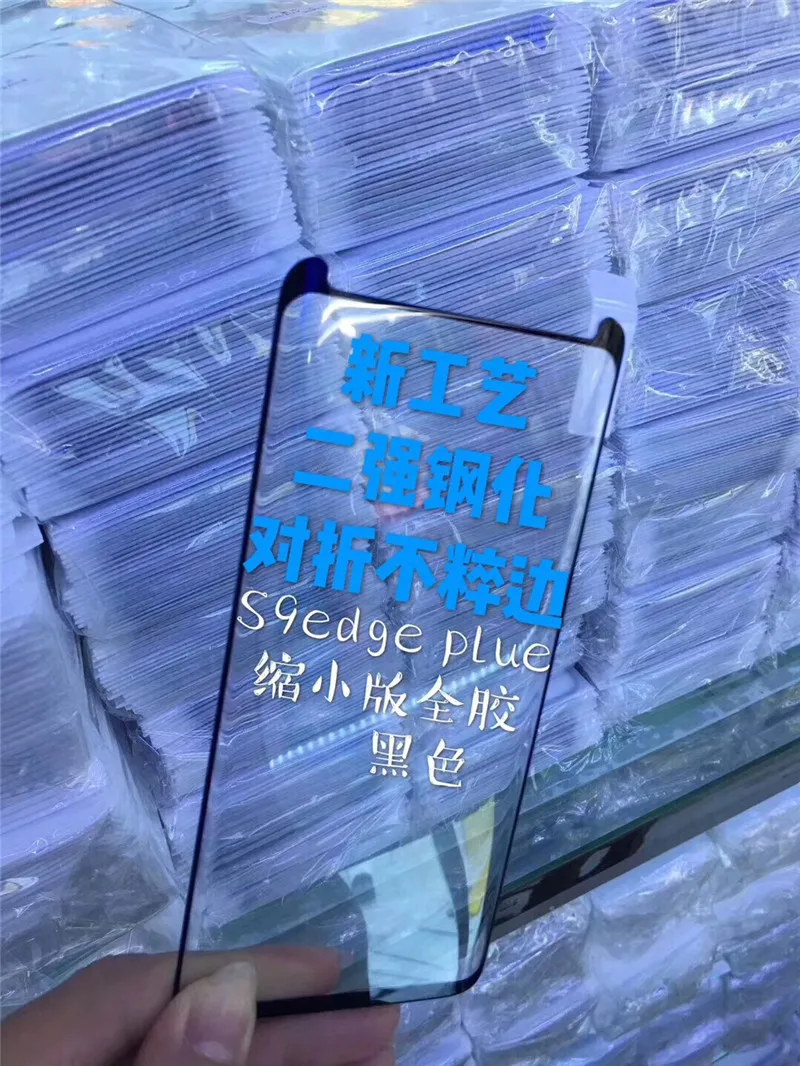 新工艺
二强钢化
对折不粹边
S9edge plue
缩小版全胶
黑色